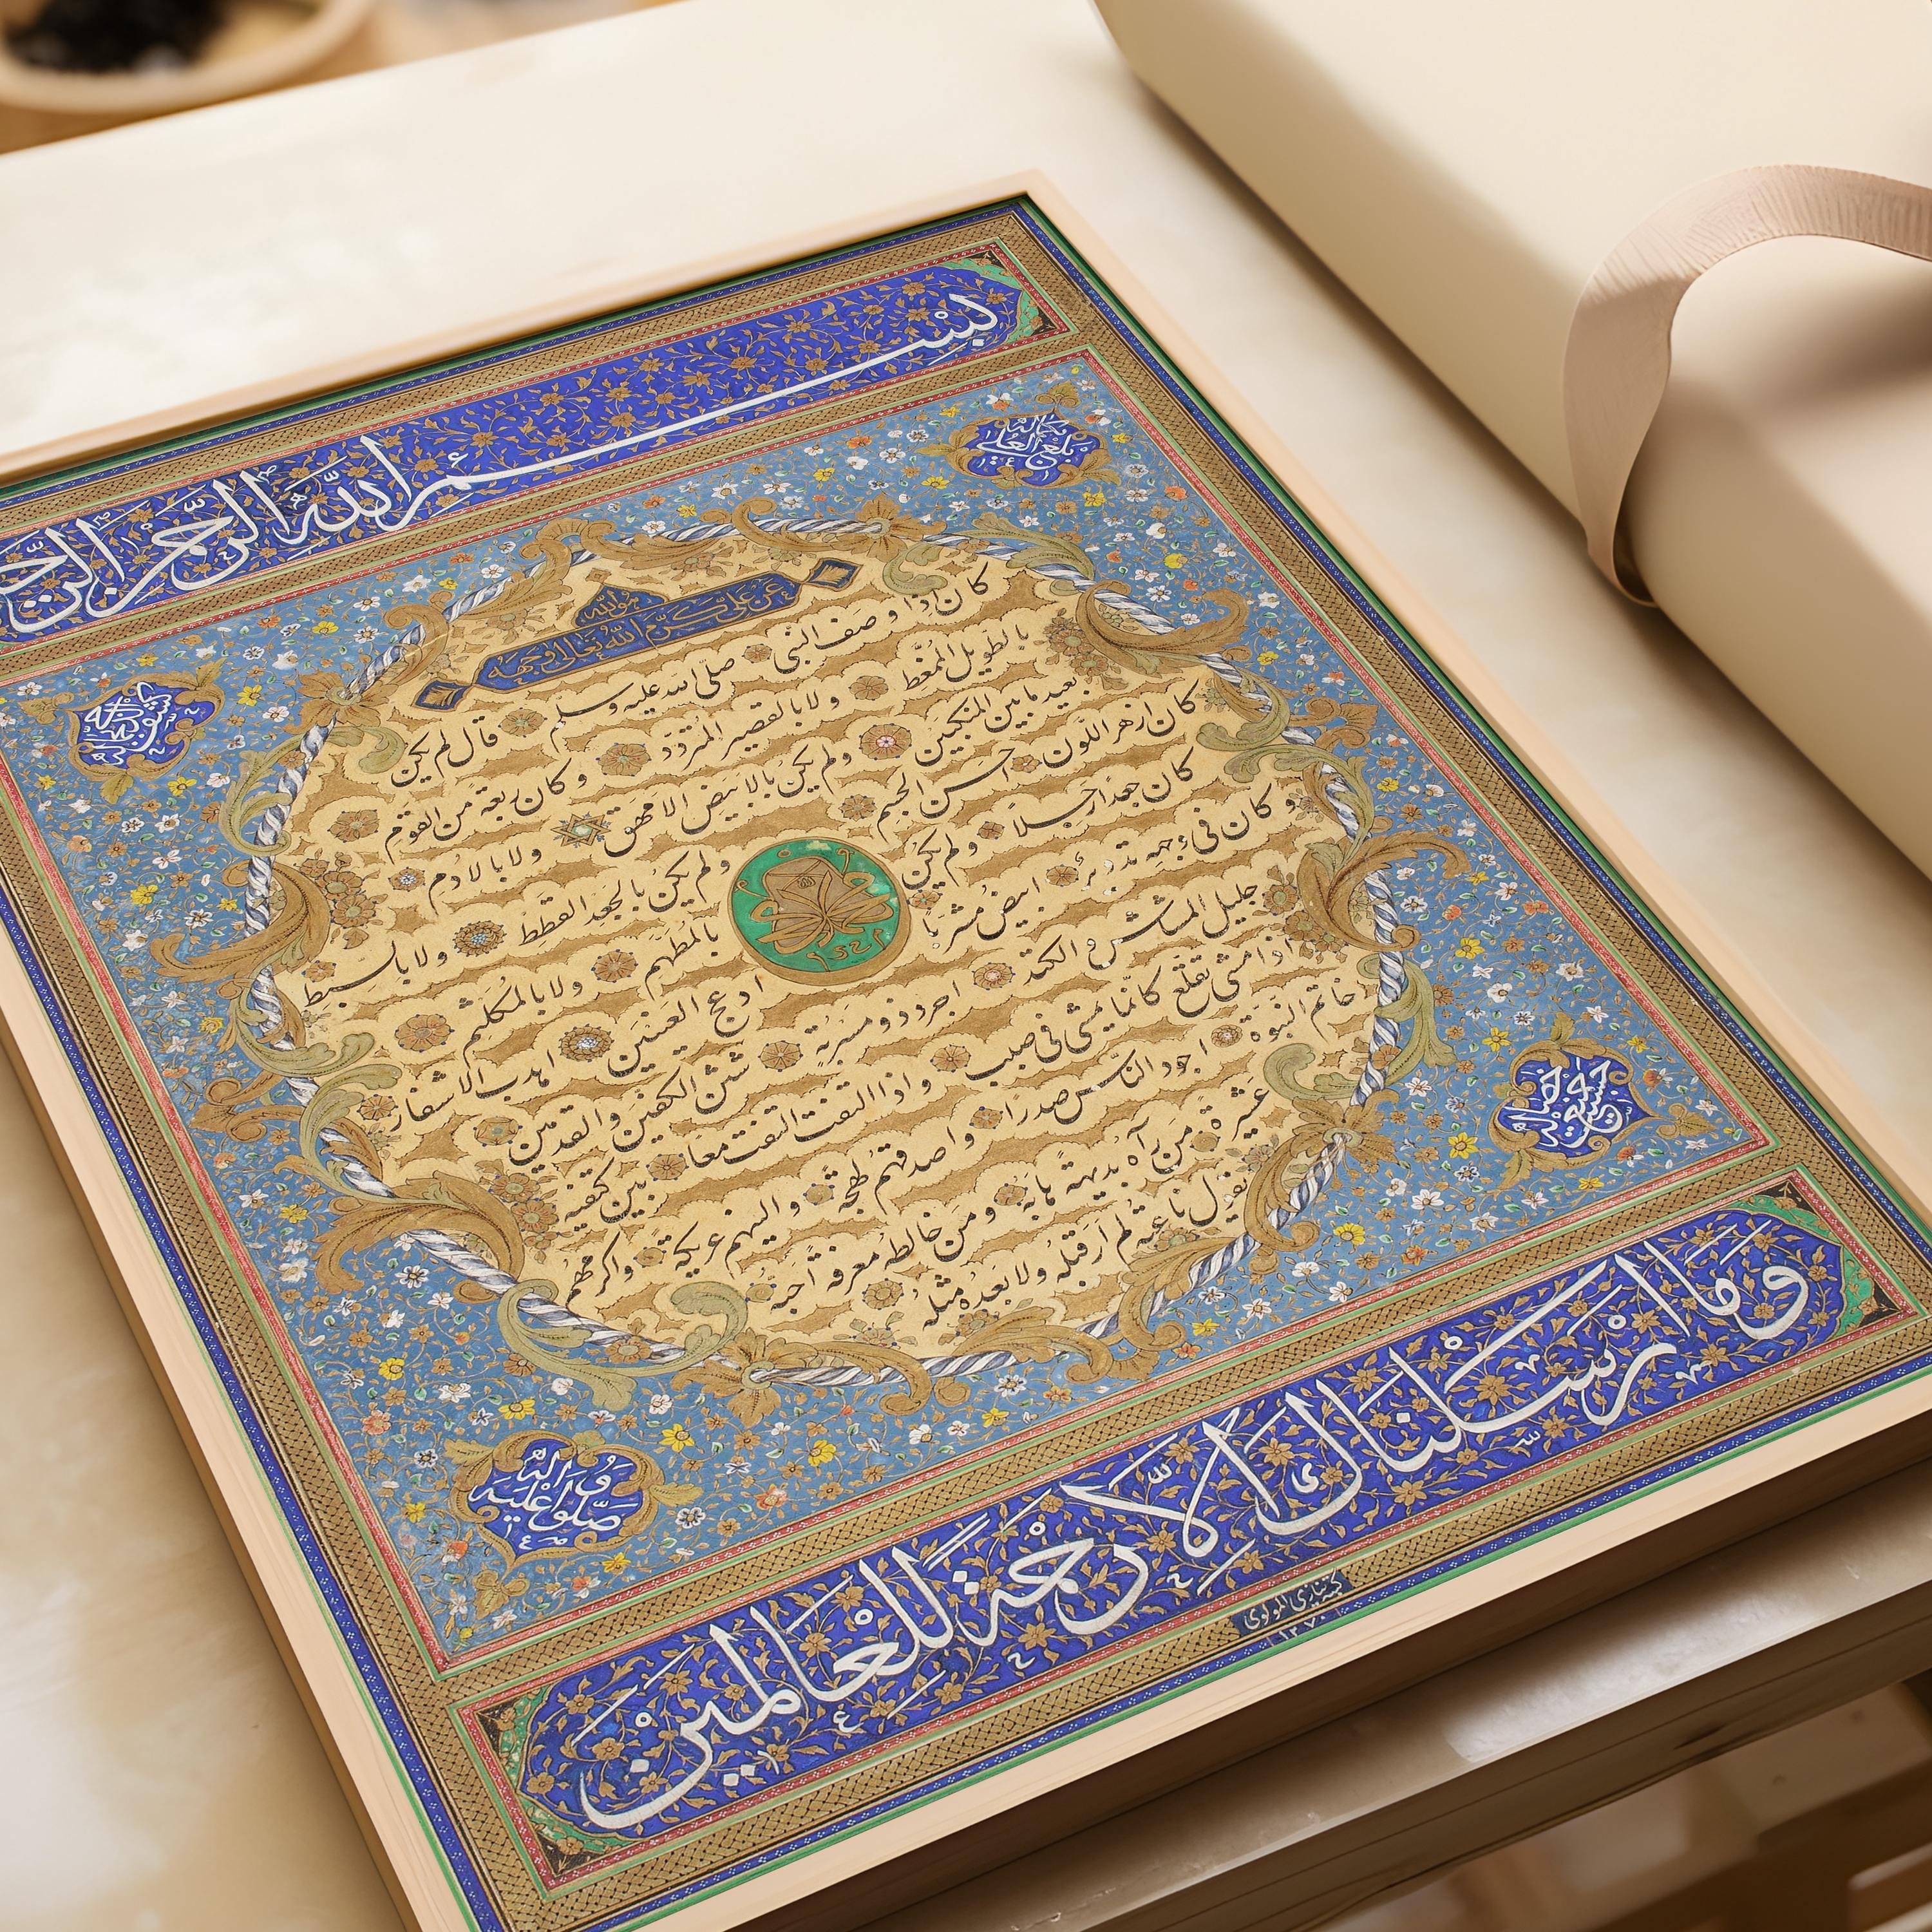 بسم الله الرحمن
بلغ العلى بكماله
كشف الدجى بجماله
هو الله
عن علي كرم الله تعالى وجهه
كان اذا وصف النبي صلى الله عليه وسلم قال لم يكن
بالطويل الممغط ولا بالقصير المتردد وكان ربعة من القوم
بعيد ما بين المنكبين ولم يكن بالابيض الامهق ولا بالادم
كان ازهر اللون حسن الجسم ولم يكن بالجعد القطط ولا بالسبط
كان جعدا رجلا ولم يكن بالمطهم ولا بالمكلثم
وكان في وجهه تدوير ابيض مشربا ادعج العينين اهدب الاشفار
جليل المشاش والكتد اجرد ذو مسربة شثن الكفين والقدمين
اذا مشى تقلع كانما يمشي في صبب واذا التفت التفت معا بين كتفيه
خاتم النبوة اجود الناس صدرا واصدقهم لهجة والينهم عريكة واكرمهم
عشيرة من رآه بديهة هابه ومن خالطه معرفة احبه
يقول ناعته لم ار قبله ولا بعده مثله
حسنت جميع خصاله
صلوا عليه وآله
وما ارسلناك الا رحمة للعالمين
كتبه نيازي المولوي